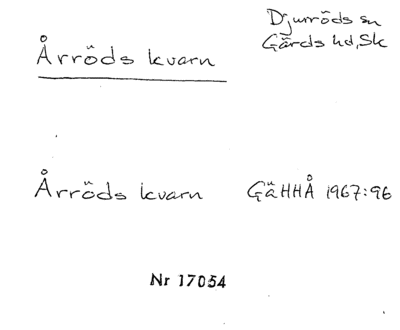 Djurröds sn
Gärds hd, Sk
Årröds kvarn
Årröds kvarn GäHHÅ 1967:96
Nr 17054